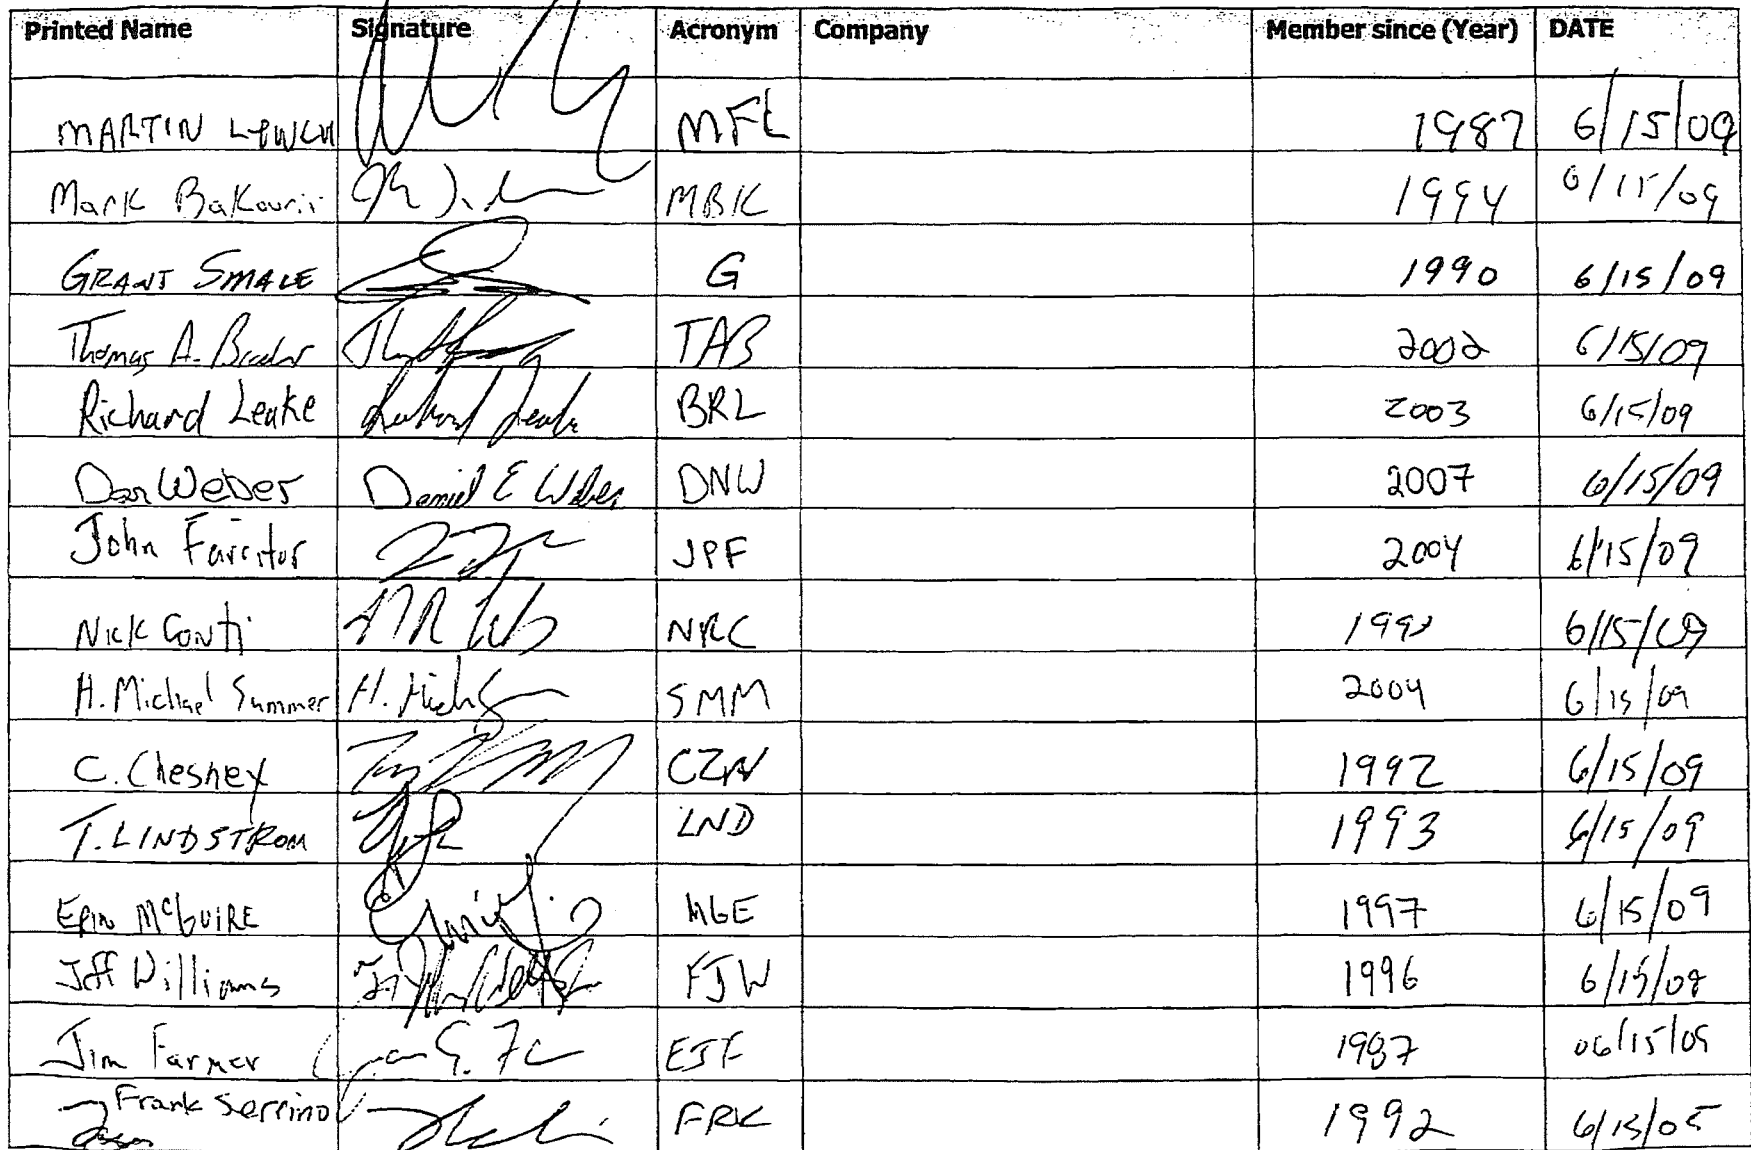 Printed Name Signature Acronym Company Member since (Year) DATE
MARTIN LYNCH MFL 1987 6/15/09
Mark MBK 1994 6/15/09
GRANT SMALE G 1990 6/15/09
Thomas A. TAB 2002 6/15/09
Richard Leake Richard Leake BRL 2003 6/15/09
Dan Weber Daniel E Weber DNW 2007 6/15/09
John Farritor JPF 2004 6/15/09
Nick Conti NRC 6/15/09
H. Michael Summer H. Mich SMM 2004 6/15/09
C. Chesney CZN 1992 6/15/09
T. LINDSTROM LND 1993 6/15/09
ERIN McGUIRE MGE 1997 6/15/09
Jeff Williams FJW 1996 6/15/09
Jim Farmer EJF 1987 06/15/09
Frank Serrino FRK 1992